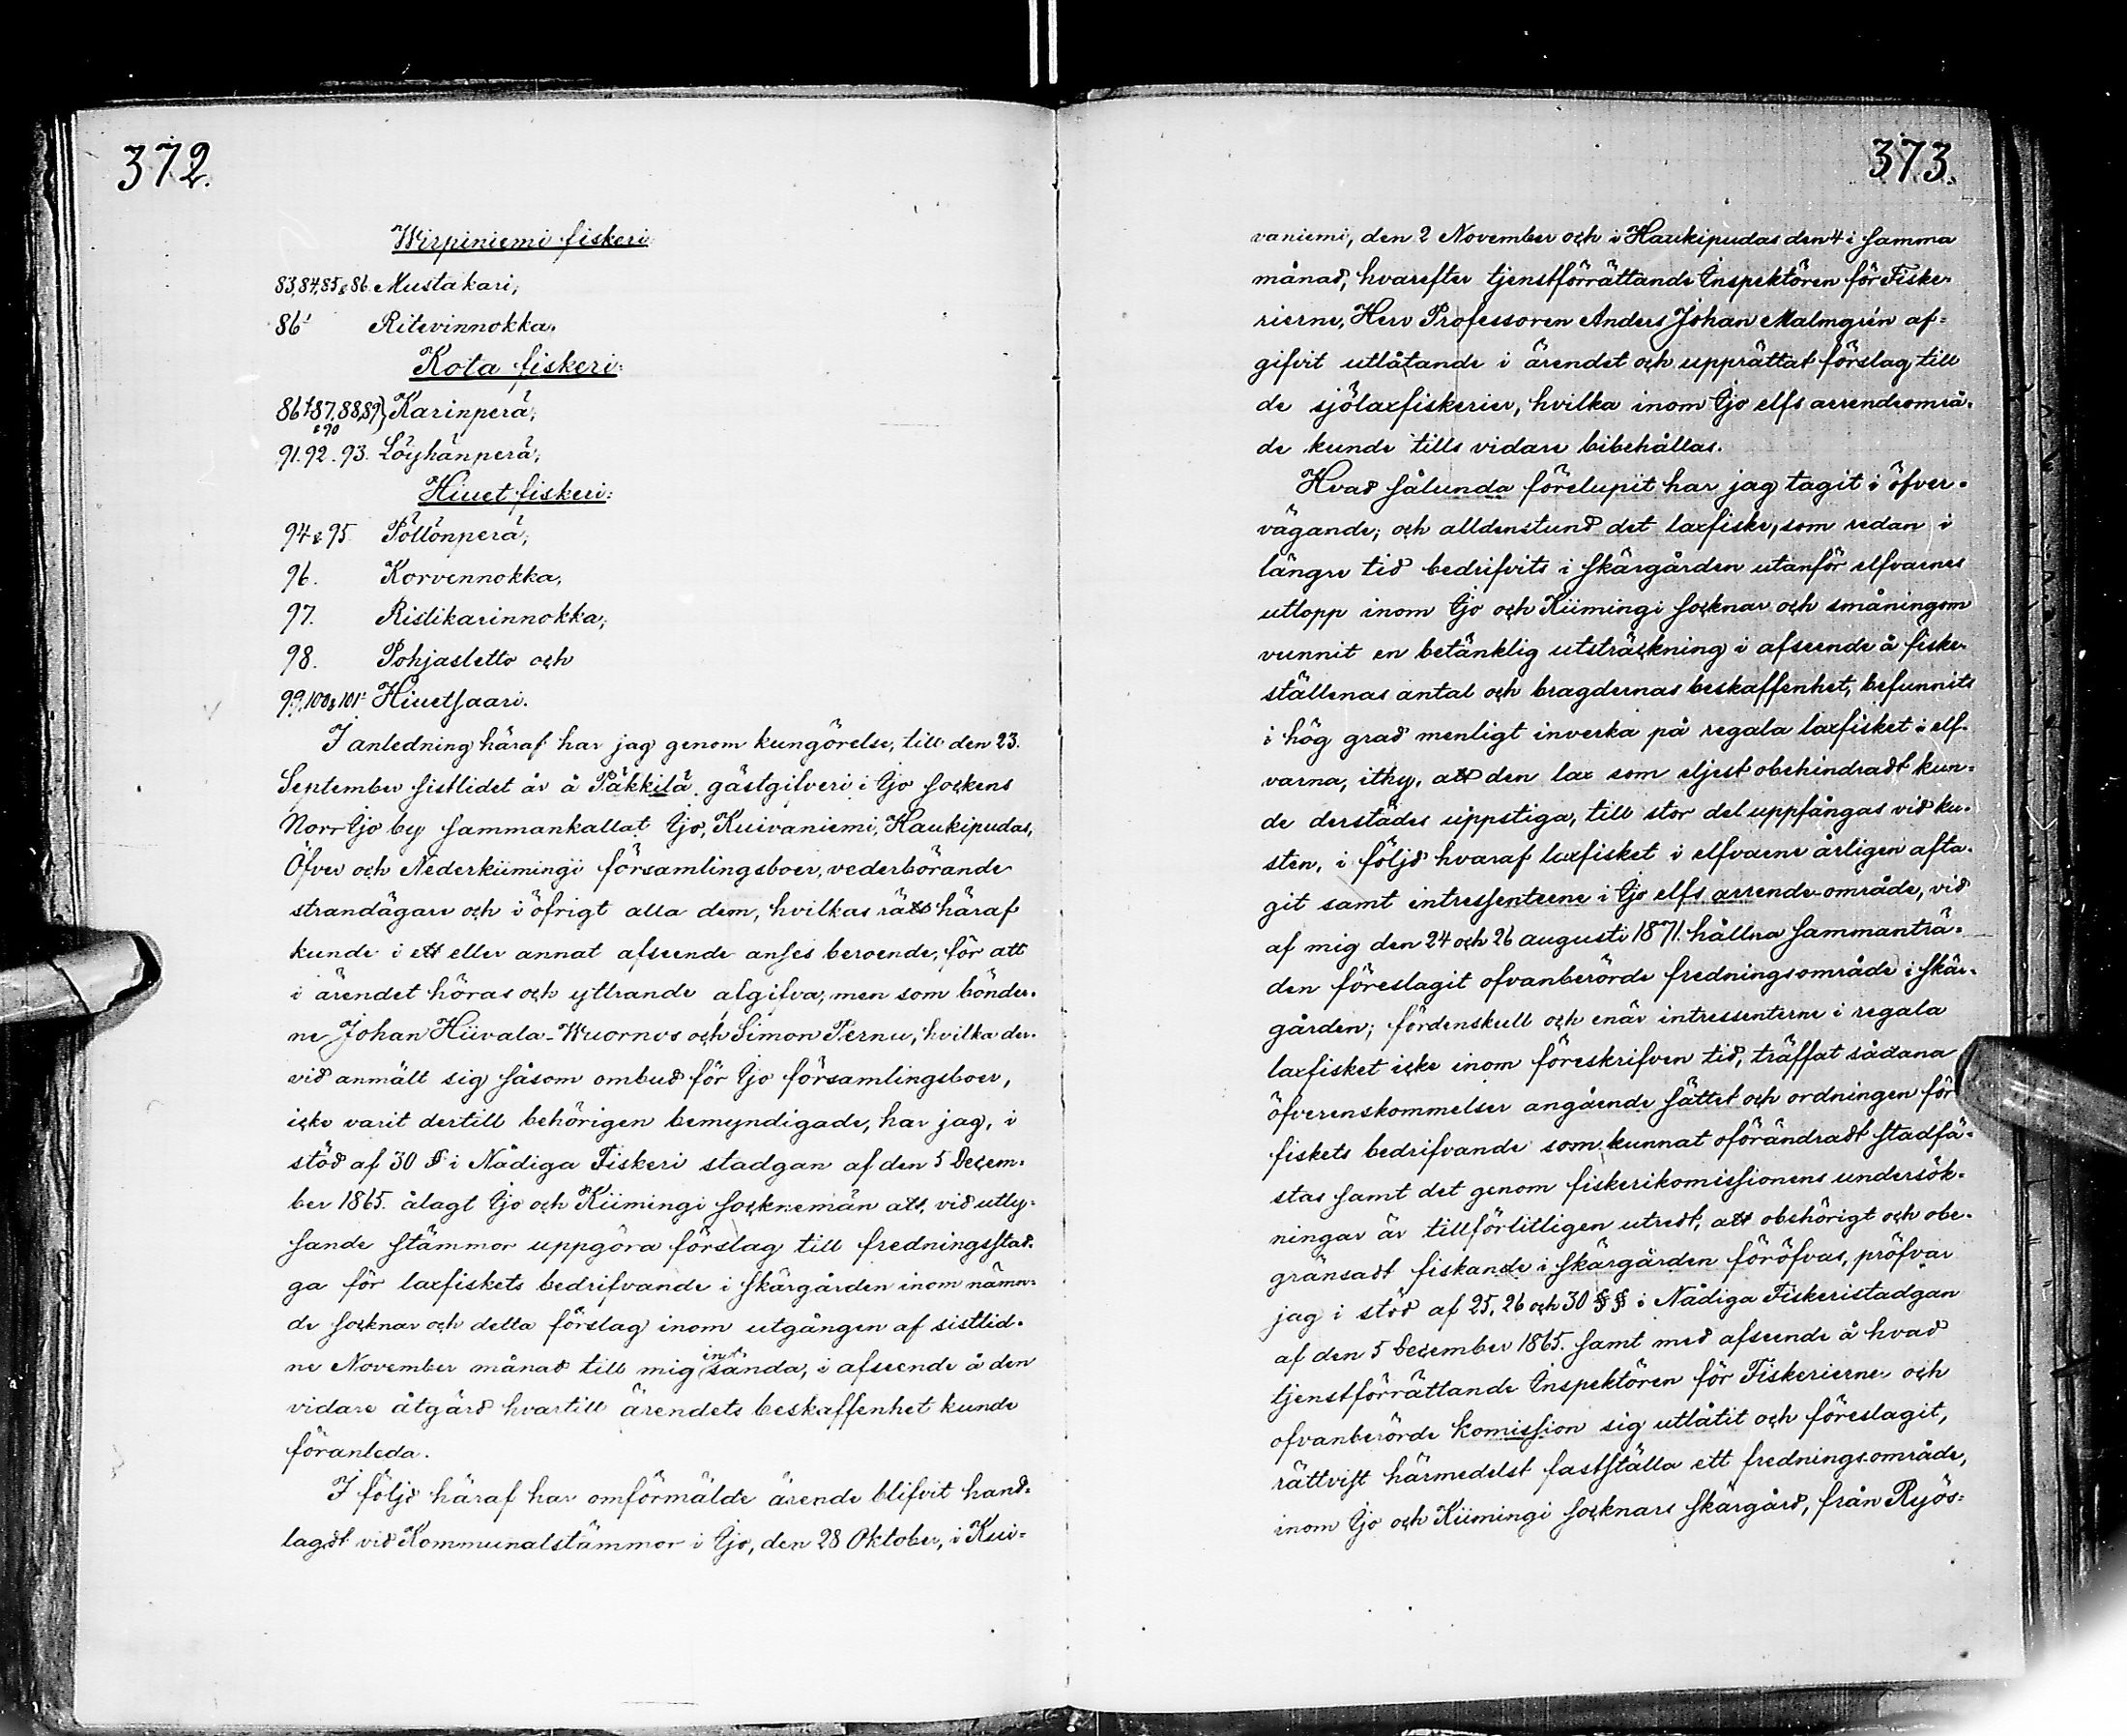 372.
Wirpiniemi fiskeri
83,84,85 & 86. Mustakari;
86½ Ritevinnokka.
Kota fiskeri:
86½ 87, 88, 89 } Karinperä;
& 90
91. 92. 93. Löyhänperä;
Hiuet fiskeri:
94 & 95 Pöllönperä;
96. Korvennokka;
97. Ristikarinnokka;
98. Pohjasletto och
99, 100 & 101 Hiuetsaari.
I anledning häraf har jag genom kungörelse, till den 23.
September sistlidet år å Päkkilä gästgifveri i Ijo sockens
Norr Ijo by sammankallat Ijo, Kuivaniemi, Haukipudas,
Öfver och Nederkiimingi församlingsboer, vederbörande
strandägare och i öfrigt alla dem, hvilkas rätt häraf
kunde i ett eller annat afseende anses beroende, för att
i ärendet höras och yttrande afgifva; men som bönder-
ne Johan Hiivala-Wuornos och Simon Pernu, hvilka der-
vid anmält sig såsom ombud för Ijo församlingsboer,
icke varit dertill behörigen bemyndigade, har jag, i
stöd af 30 § i Nådiga Fiskeri stadgan af den 5 Decem-
ber 1865. ålagt Ijo och Kiimingi socknemän att, vid utly-
sande stämmor uppgöra förslag till fredningsstad-
ga för laxfiskets bedrifvande i skärgården inom nämn-
de socknar och detta förslag inom utgången af sistlid-
ne November månad till mig insända, i afseende å den
vidare åtgärd hvartill ärendets beskaffenhet kunde
föranleda.
I följd häraf har omförmälde ärende blifvit hand-
lagdt vid Kommunalstämmor i Ijo, den 28 Oktober, i Kui-
373.
vaniemi, den 2 November och i Haukipudas den 4 i samma
månad, hvarefter tjenstförrättande Inspektören för Fiske-
rierne, Herr Professoren Anders Johan Malmgrén af-
gifvit utlåtande i ärendet och upprättat förslag till
de sjölaxfiskerier, hvilka inom Ijo elfs arrendeområ-
de kunde tills vidare bibehållas.
Hvad sålunda förelupit har jag tagit i öfver-
vägande; och alldenstund det laxfiske, som redan i
längre tid bedrifvits i skärgården utanför elfvarnes
utlopp inom Ijo och Kiimingi socknar och småningom
vunnit en betänklig utsträckning i afseende å fiske-
ställenas antal och bragdernas beskaffenhet, befunnits
i hög grad menligt inverka på regala laxfisket i elf-
varna, ithy, att den lax som eljest obehindradt kun-
de derstädes uppstiga, till stor del uppfångas vid ku-
sten, i följd hvaraf laxfisket i elfvarne årligen afta-
git samt intressenterne i Ijo elfs arrende område, vid
af mig den 24 och 26 augusti 1871. hållna sammanträ-
den föreslagit ofvanberörde fredningsområde i skär-
gården; fördenskull och enär intressenterne i regala
laxfisket icke inom föreskrifven tid, träffat sådana
öfverenskommelser angående sättet och ordningen för
fiskets bedrifvande som kunnat oförändradt stadfä-
stas samt det genom fiskerikomissionens undersök-
ningar är tillförlitligen utredt, att obehörigt och obe-
gränsadt fiskande i skärgården föröfvas, pröfvar
jag i stöd af 25, 26 och 30 §§ i Nådiga Fiskeristadgan
af den 5 December 1865. samt med afseende å hvad
tjenstförrättande Inspektören för Fiskerierne och
ofvanberörde komission sig utlåtit och föreslagit,
rättvist härmedelst fastställa ett fredningsområde,
inom Ijo och Kiimingi socknars skärgård, från Ryös-